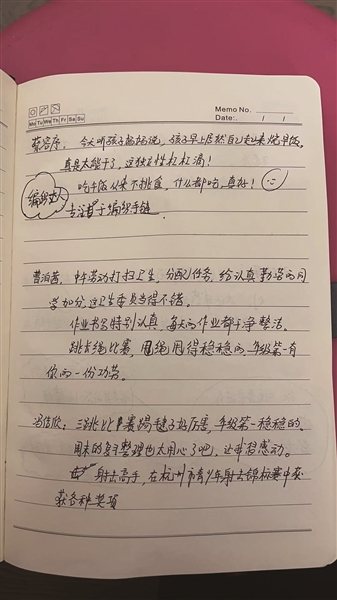 Memo No.
Mo Tu We Th Fr Sa Su
Date: / /
蔡容库：今天听孩子妈妈说，孩子早上居然自己起来烧早饭，
真是太能干了，这独立性杠杠滴！
吃午饭从来不挑食，什么都吃，真好！
编织达人
专注于编织手链
曹泊茜：中午劳动打扫卫生，分配任务，给认真勤劳的同
学加分，这卫生委员当得不错。
作业书写特别认真，每天的作业都干净整洁。
跳长绳比赛，甩绳甩得稳稳的，年级第一有
你的一份功劳。
冯信欣：三跳比赛踢毽子好厉害，年级第一稳稳的，
周末的复习整理也太用心了吧，让我感动。
射击高手，在杭州市青少年射击锦标赛中获
获各种奖项